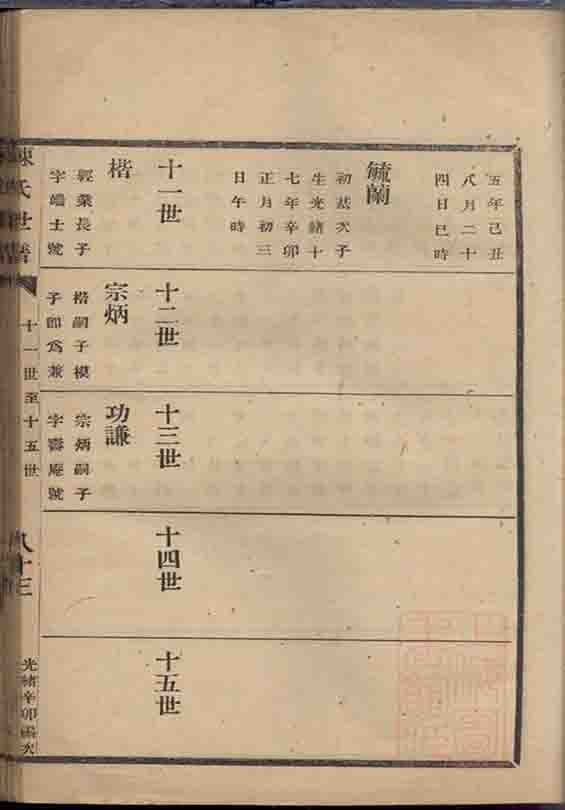 五年己丑
八月二十
四日巳時
毓蘭
初裁次子
生光緒十
七年辛卯
正月初三
日午時
十一世
楷
經業長子
字端士號
十二世
宗炳
楷嗣子模
子卽爲兼
十三世
功謙
宗炳嗣子
字壽庵號
十四世
十五世
陳氏世譜
十一世至十五世
八十三
光緒辛卯編次